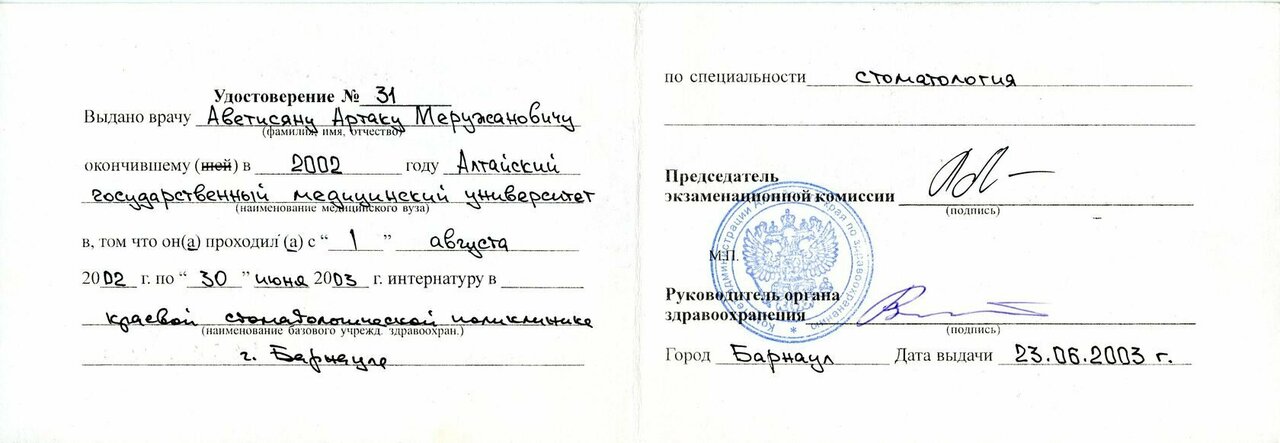 Удостоверение № 31
Выдано врачу Аветисяну Артаку Меружановичу
(фамилия, имя, отчество)
окончившему (шей) в 2002 году Алтайский
государственный медицинский университет
(наименование медицинского вуза)
в, том что он(а) проходил (а) с “ 1 ” августа
2002 г. по “ 30 ” июня 2003 г. интернатуру в
краевой стоматологической поликлинике
(наименование базового учрежд. здравоохран.)
г. Барнауле
по специальности стоматология
Председатель
экзаменационной комиссии
(подпись)
М.П.
Руководитель органа
здравоохранения
(подпись)
Город Барнаул Дата выдачи 23.06.2003 г.